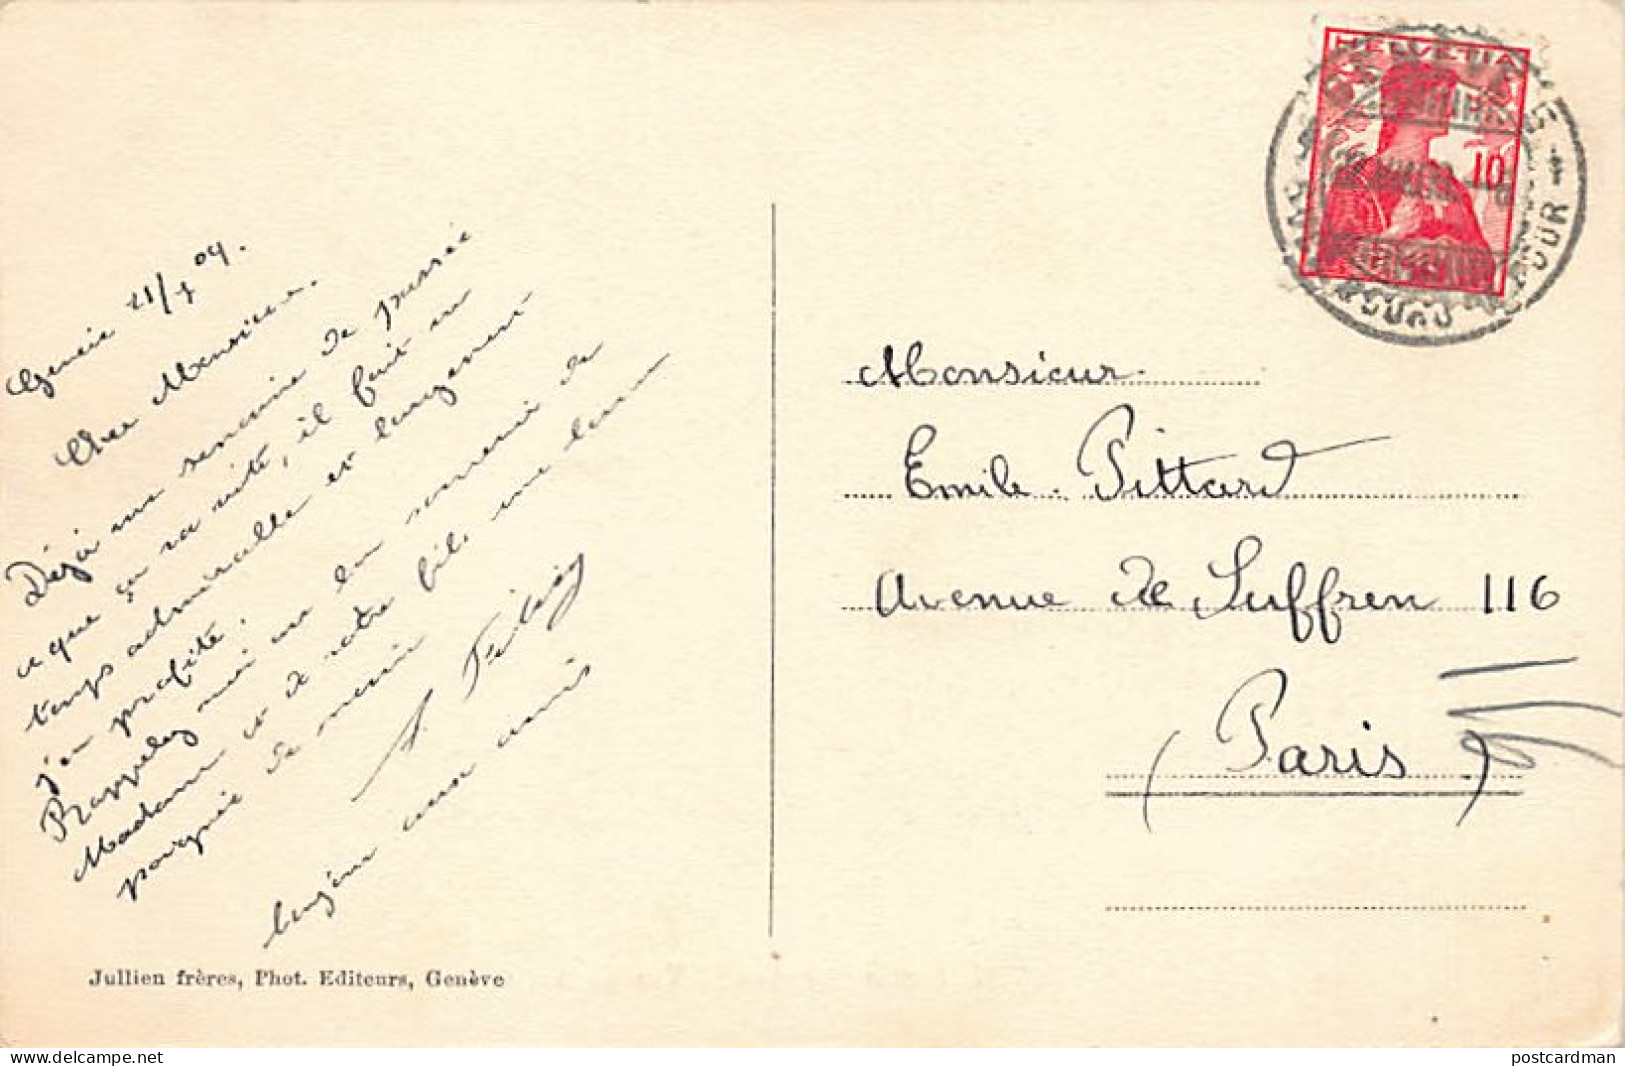 Genève 21/7 09.
Cher Monsieur.
Déjà une semaine de passée
ce que ça va vite, il fait un
temps admirable et
j'en profite.
Rappelez moi au bon souvenir de
Madame et de votre fils, une bonne
poignée de main
aux amis
Jullien frères, Phot. Editeurs, Genève
HELVETIA
10
Monsieur.
Emile Pittard
Avenue de Suffren 116
(Paris)
www.delcampe.net
postcardman